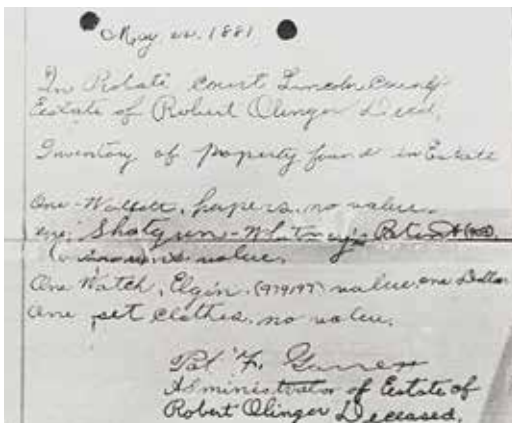 May 1881
In Probate Court Lincoln County
Estate of Robert Olinger Deced.
Inventory of property found in Estate
One - Wallett, papers, no value.
one, Shotgun - Whitney's Patent
no value.
One Watch, Elgin, value, one Dollar
One set clothes, no value.
Pat F. Garrett
Administrator of Estate of
Robert Olinger Deceased.